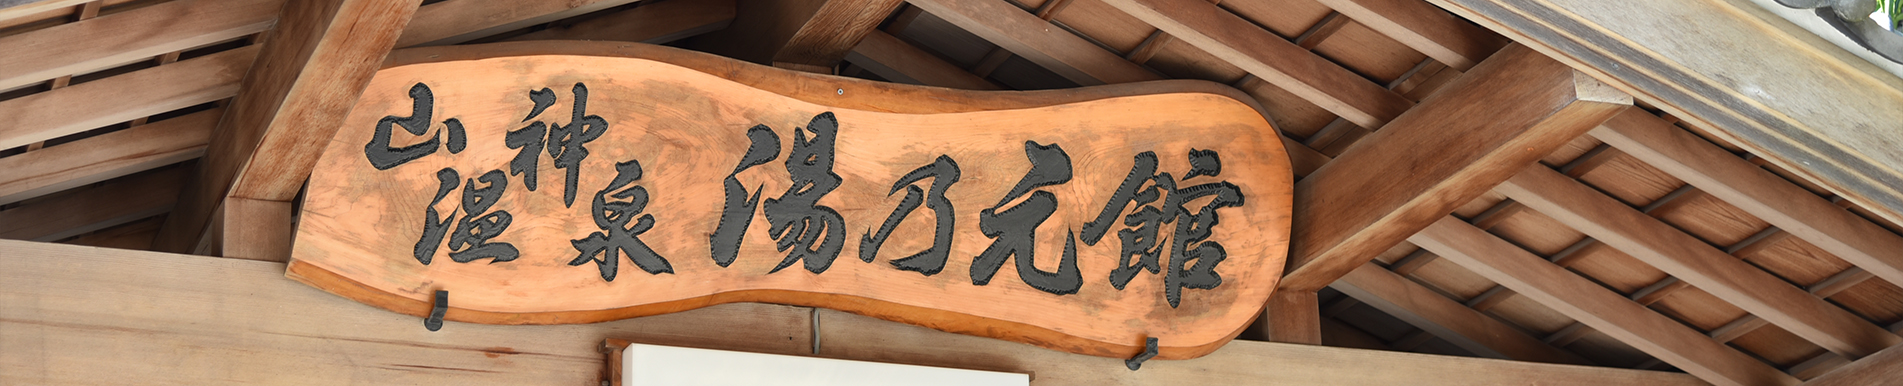 山神温泉
湯乃元館